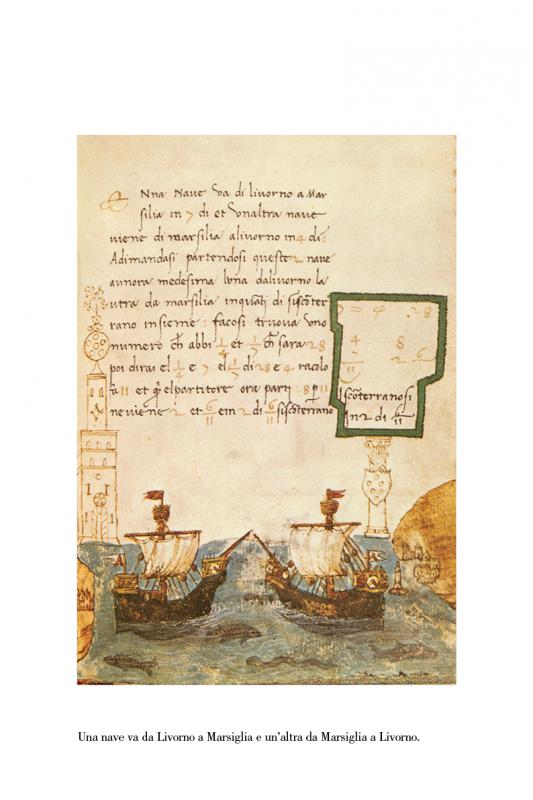 Nna Naue Va di liuorno a Mar
silia in 7 di et Vnaltra naue
viene di marsilia aliuorno in 4 di:
Adimandasi partendosi queste 2 naue
aunora medesima luna daliuorno la
utra da marsilia inquāti di siscōter
rano insieme: facosi truoua uno
numero ch̄ abbi 1/4 et 1/7 ch̄ sara 28
poi dirai el 1/4 e 7 el 1/7 di 28 e 4 racolo
fa 11 et q̄ elpartitore ora parti 28 p 11
ne viene 2 et 6/11 e in 2 di 6/11 siscōterrano
7 = 4 28
4 8
7 2 6
11
Iscōterranosi
In 2 di 6/11
Una nave va da Livorno a Marsiglia e un'altra da Marsiglia a Livorno.